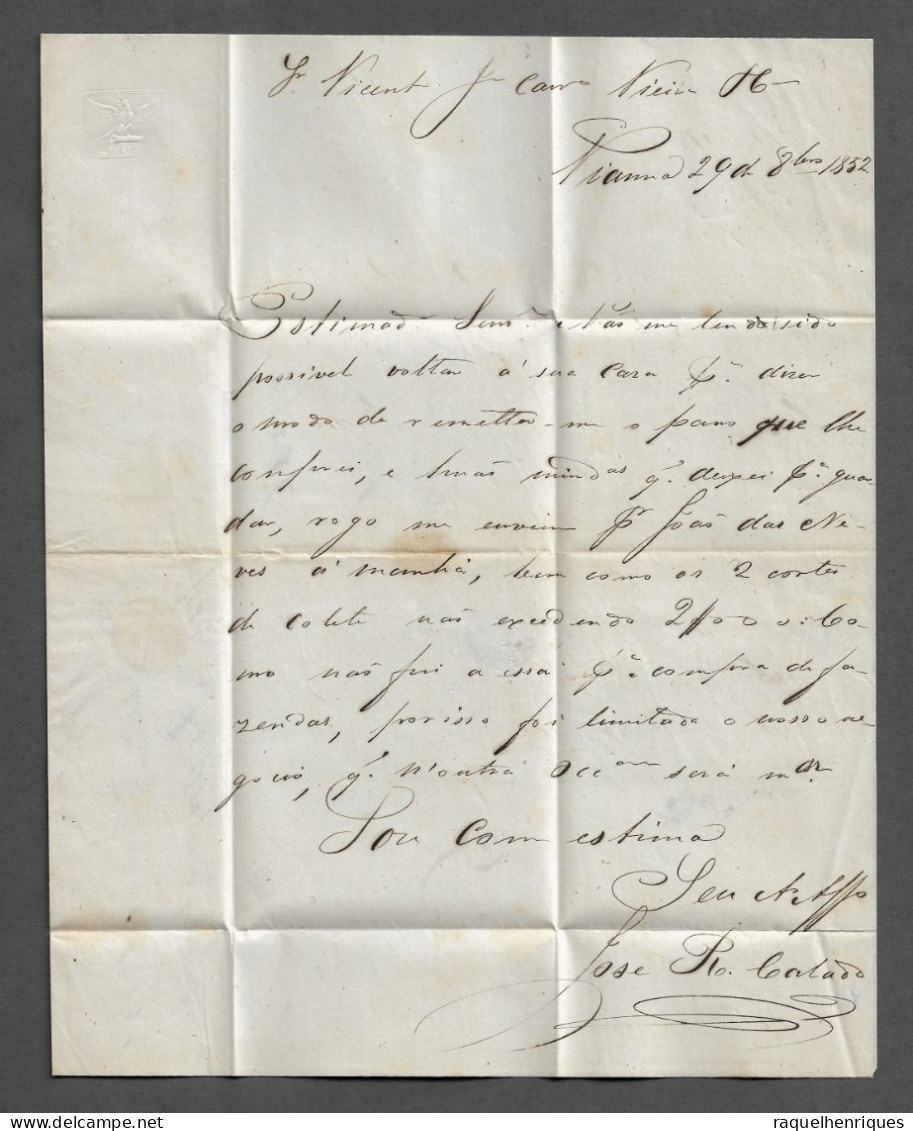 Sr. Vicent Jr Carv Vieira
Vianna 29 d 8bro 1852
Estimad Senr. Não me tendo sido
possivel voltar á sua Caza pa. dizer
o modo de remetter-me o pano que lhe
comprei, e humas miudas q. deixei pa. guar
dar, rogo me enviem pr João das Ne-
ves á manhã, bem como os 2 cortes
de colete não excedendo 2$000: Co-
mo não fui a essa pa. compra de fa-
zendas, por isso foi limitado o nosso ne-
gocio, q. n'outra occam será mor.
Sou com estima
Seu
Jose R. Calado
raquelhenriques